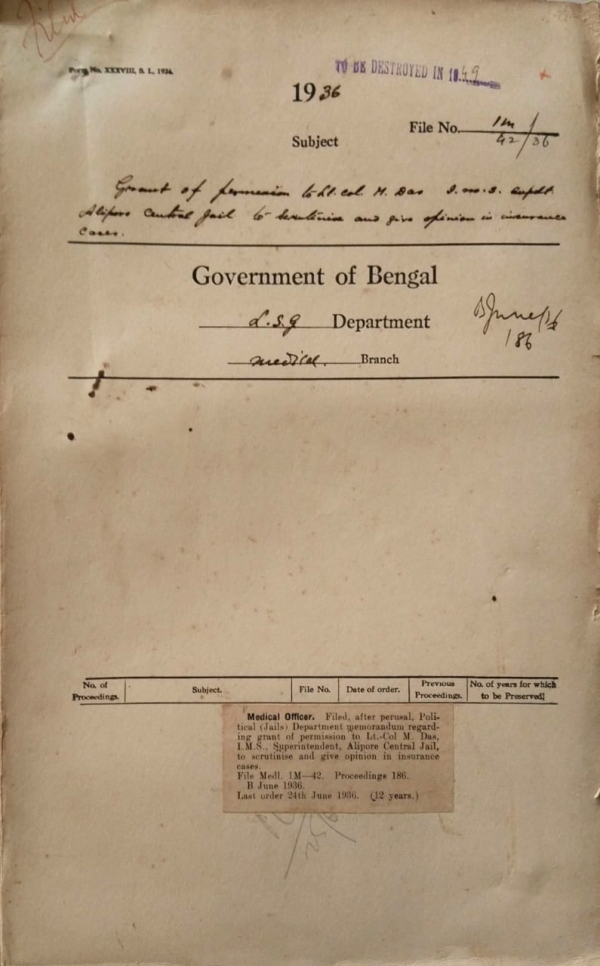 Filed
Form No. XXXVIII, S. L., 1936.
TO BE DESTROYED IN 1949
1936
File No. 1M/42/36
Subject
Grant of permission to Lt. Col. M. Das I.M.S. Supdt.
Alipore Central Jail to scrutinise and give opinion in insurance
cases.
Government of Bengal
L.S.G Department
Medical. Branch
B June/36
186
No. of Proceedings.
Subject.
File No.
Date of order.
Previous Proceedings.
No. of years for which to be Preserved.
Medical Officer. Filed, after perusal, Poli-
tical (Jails) Department memorandum regard-
ing grant of permission to Lt.-Col M. Das,
I.M.S., Superintendent, Alipore Central Jail,
to scrutinise and give opinion in insurance
cases.
File Medl. 1M—42. Proceedings 186.
B June 1936.
Last order 24th June 1936. (12 years.)